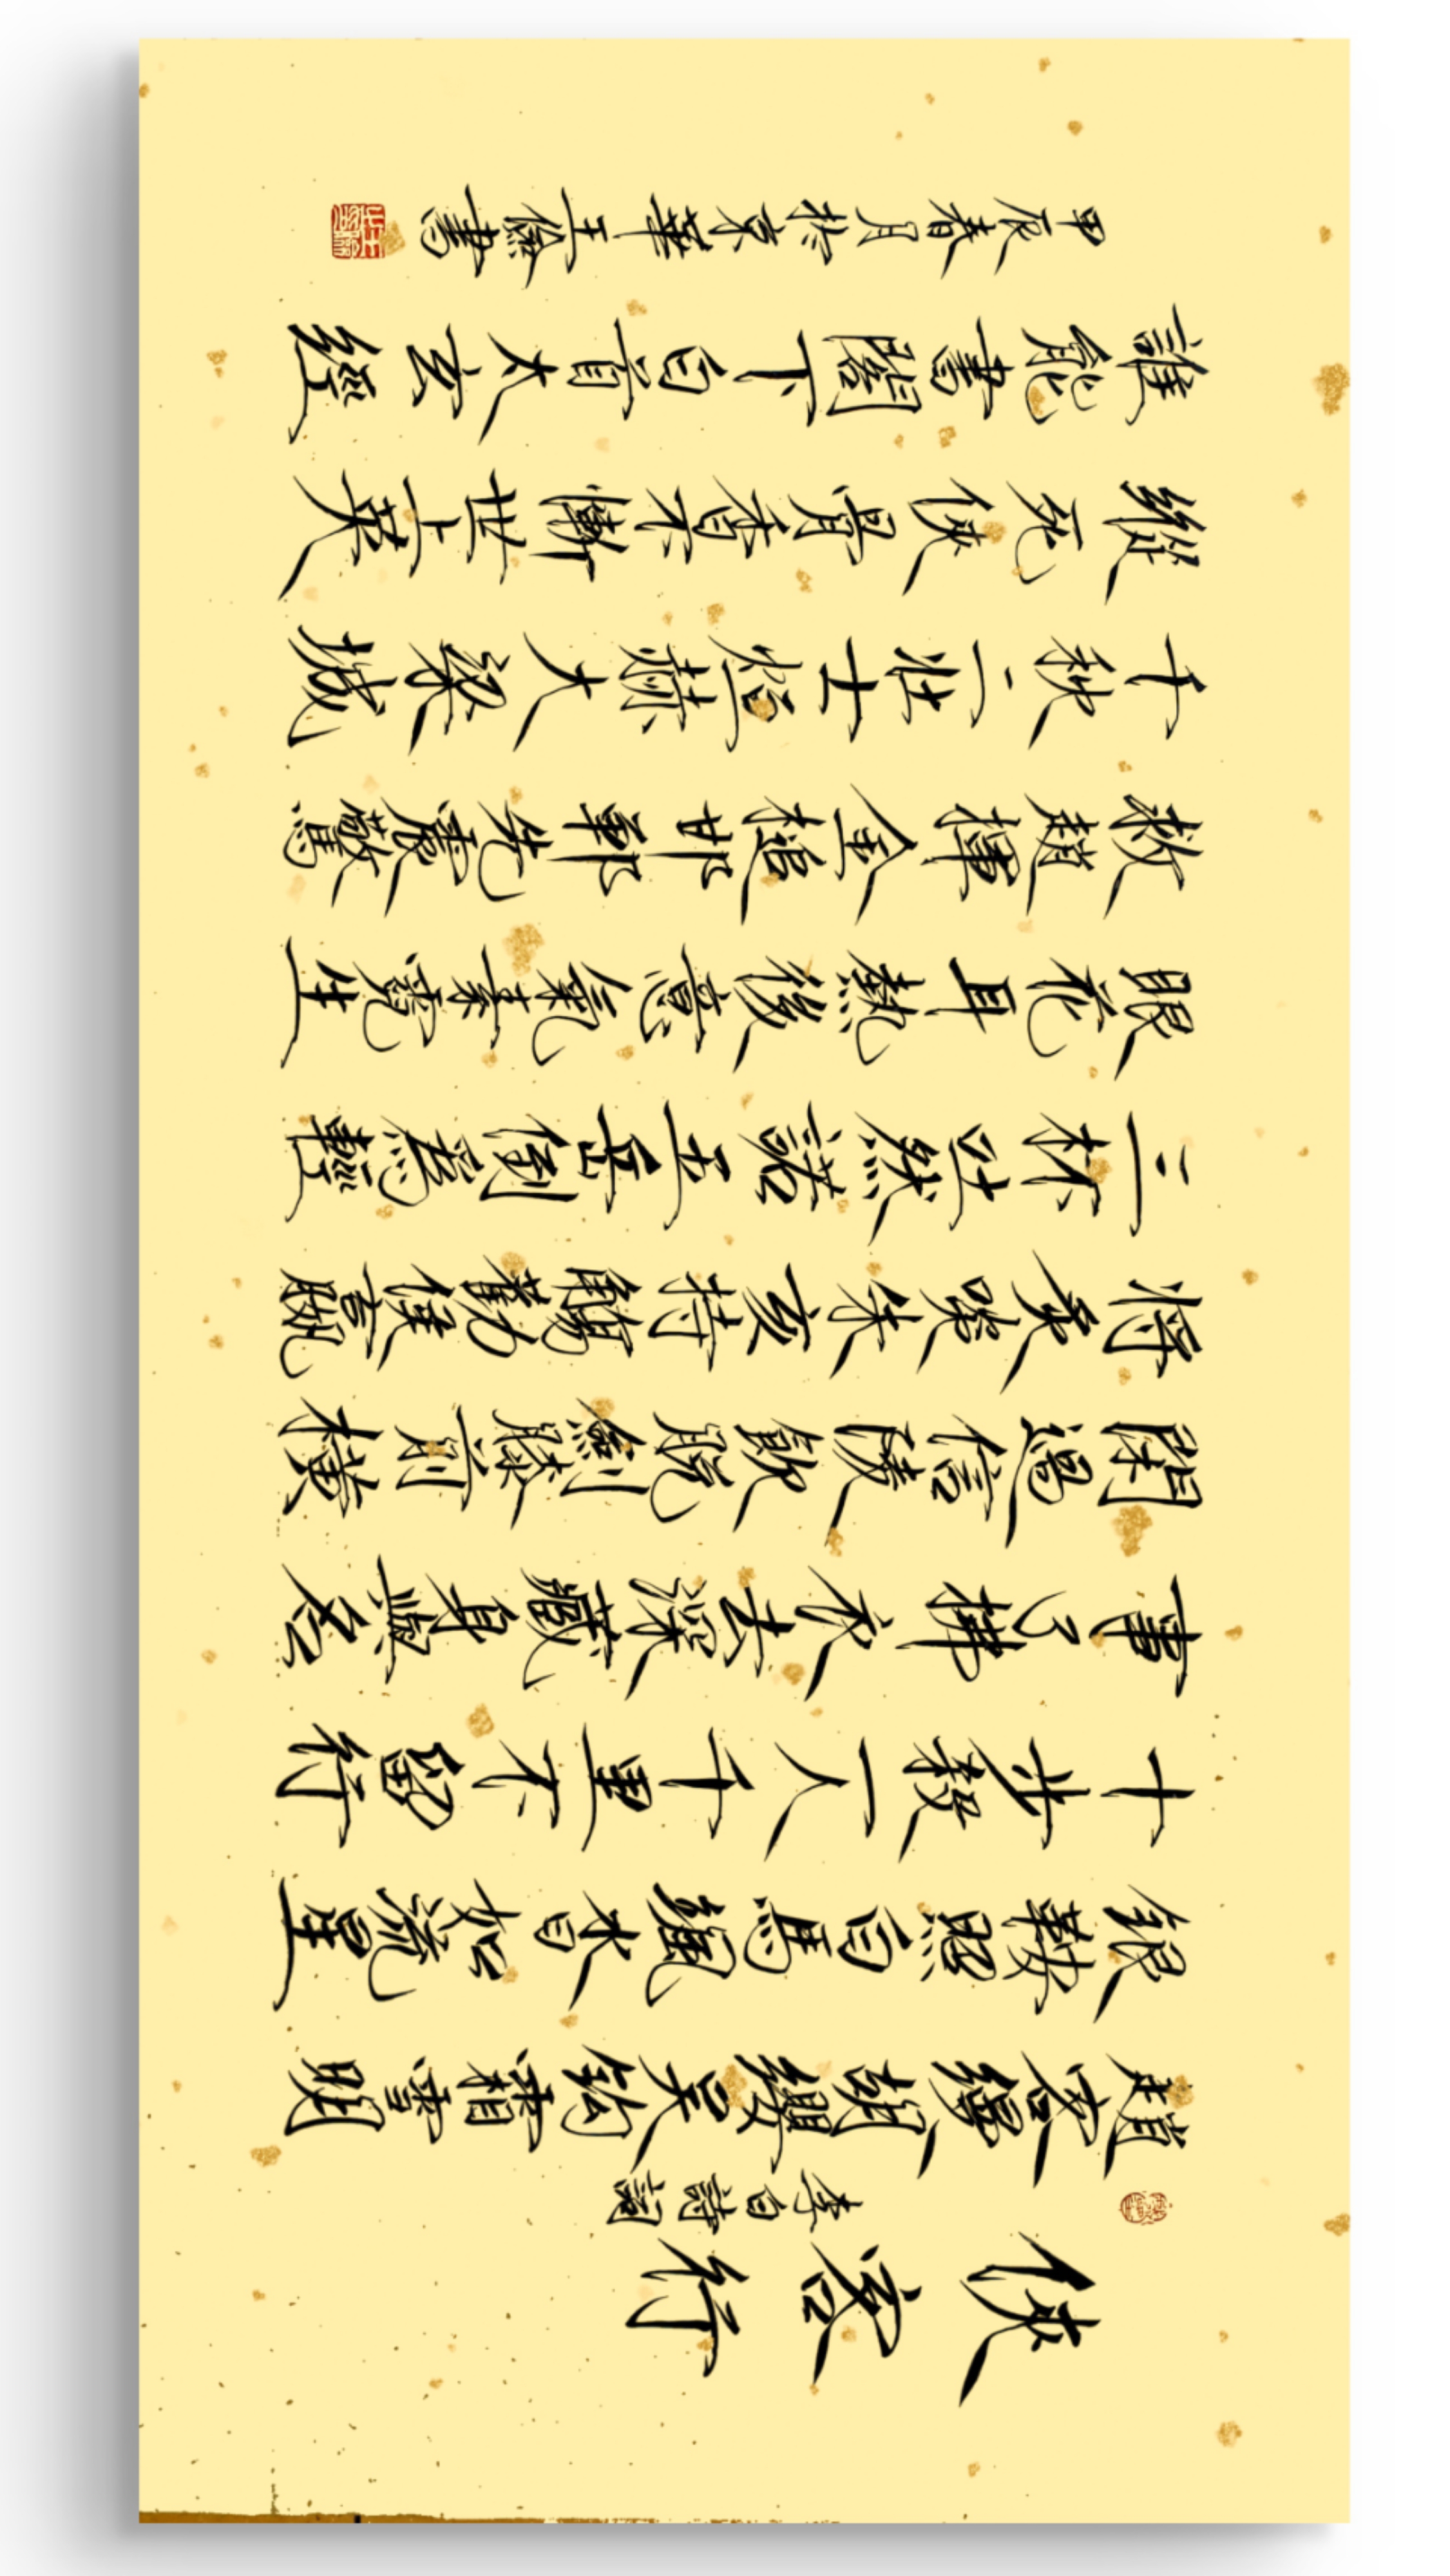 俠客行
李白詩詞
趙客縵胡纓吳鉤霜雪明
銀鞍照白馬颯沓如流星
十步殺一人千里不留行
事了拂衣去深藏身與名
閑過信陵飲脫劍膝前橫
將炙啖朱亥持觴勸侯嬴
三杯吐然諾五岳倒為輕
眼花耳熱後意氣素霓生
救趙揮金槌邯鄲先震驚
千秋二壯士烜赫大梁城
縱死俠骨香不慚世上英
誰能書閣下白首太玄經
甲辰春月於京華王儉書